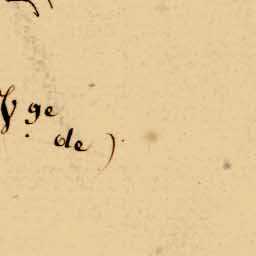 ge
de )